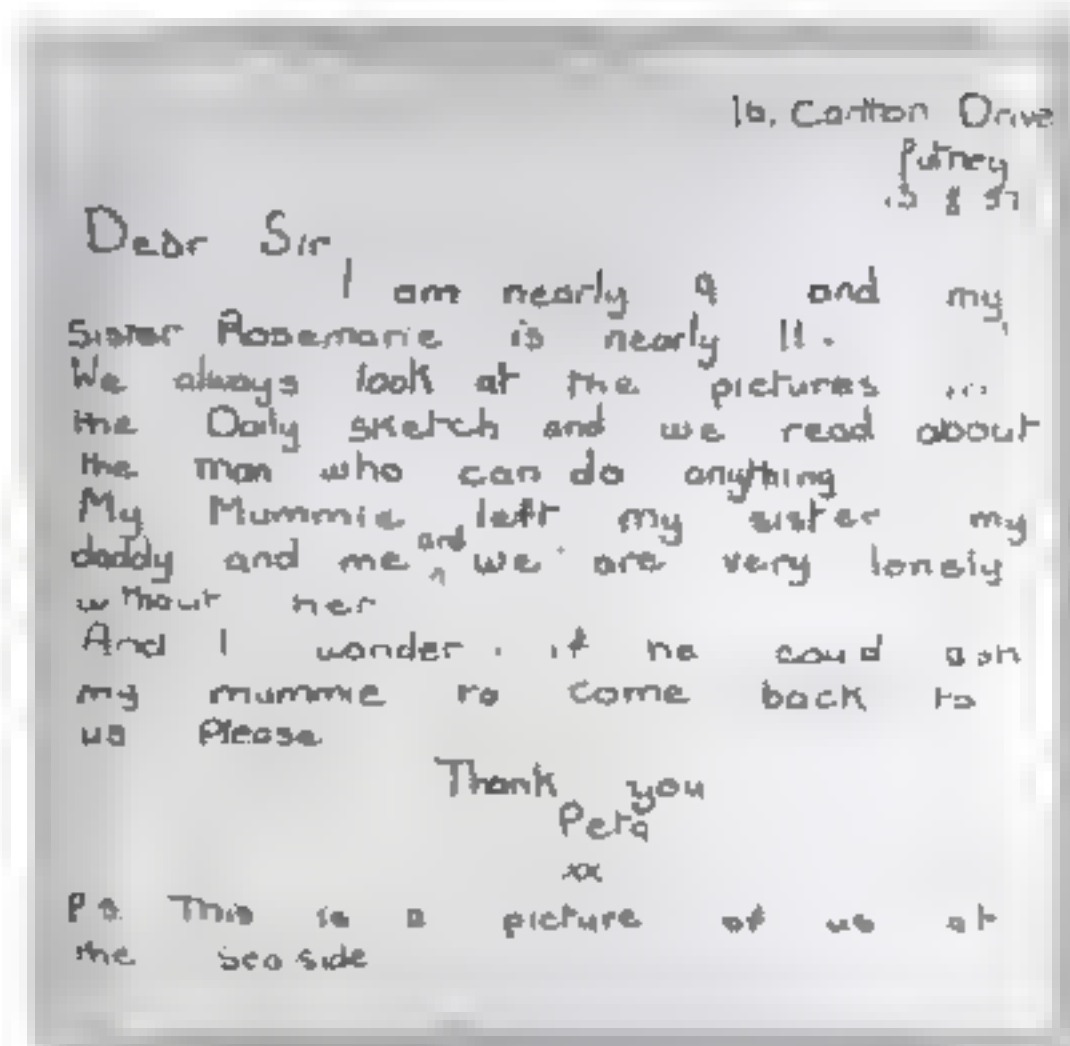 16, Carlton Drive
Putney
8 57
Dear Sir
I am nearly 9 and my
Sister Rosemarie is nearly 11.
We always look at the pictures in
the Daily sketch and we read about
the man who can do anything
My Mummie left my sister my
daddy and me and we are very lonely
without her
And I wonder if he coud ask
my mummie to come back to
us Please
Thank you
Peta
xx
P s. This is a picture of us at
the sea side